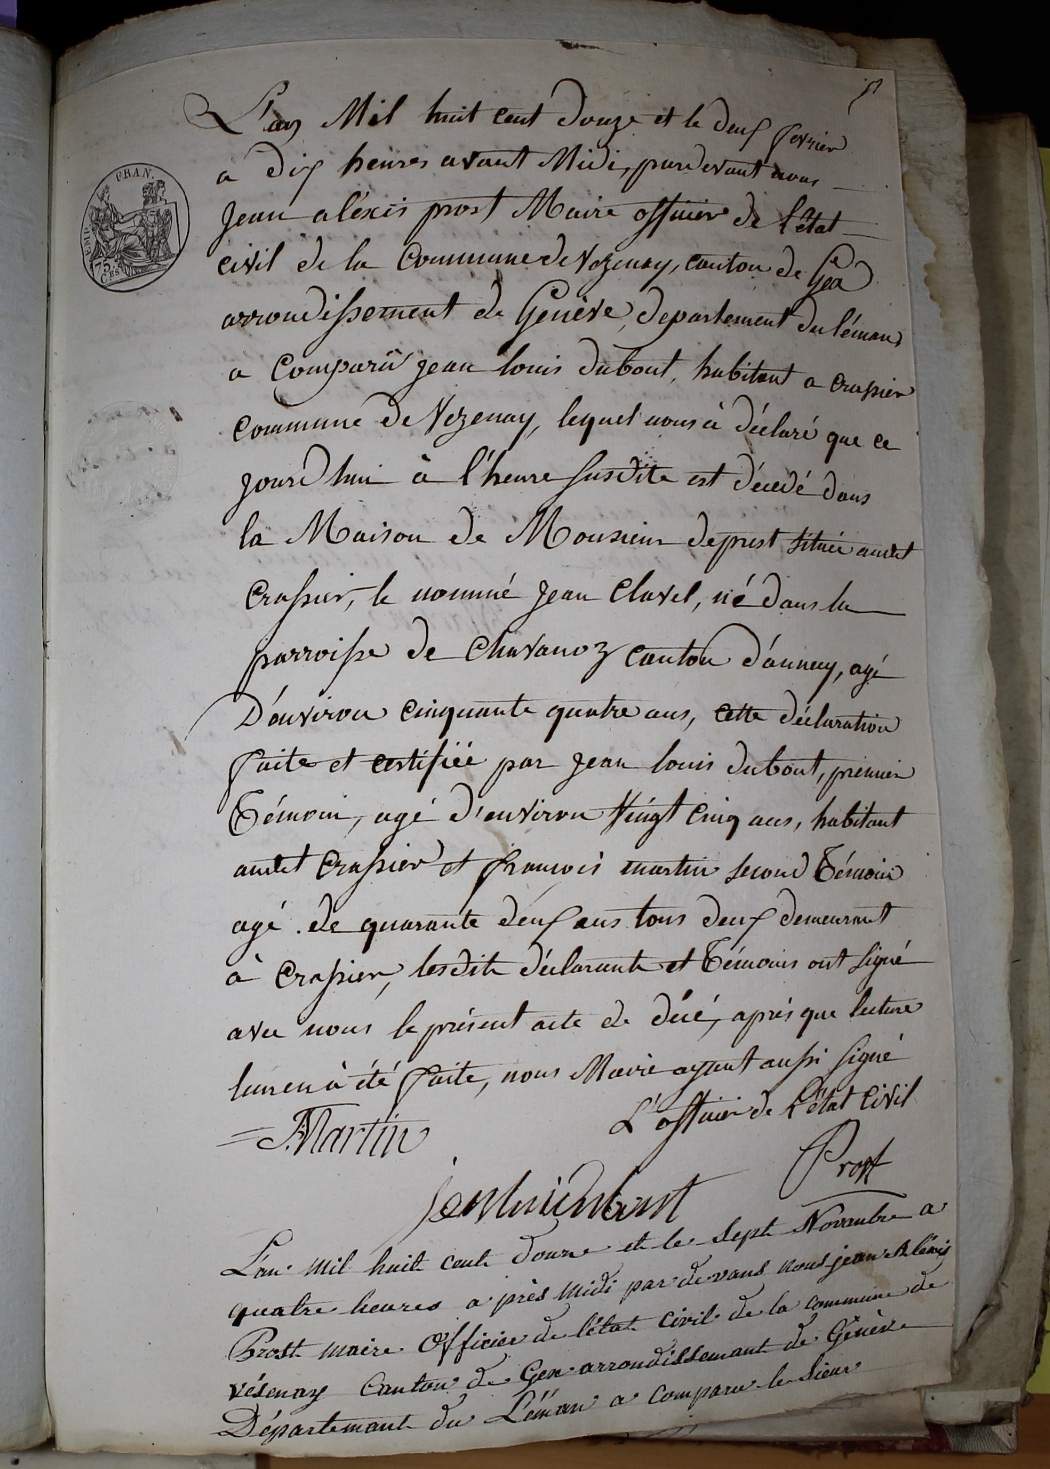 L'an Mil huit cent douze et le deux fevrier
a dix heures avant Midi, pardevant nous
Jean aléxis prost Maire officier de l'état
civil de la Commune de Vezenay, canton de Gex
FRAN.
75
CES
arrondissement de Genève, departement du léman,
a Comparû jean louis dubout, habitant a crassier
commune de Vezenay, lequel nous à déclaré que ce
jourd'hui à l'heure susdite est décédé dans
la Maison de Monsieur deprest située audit
Crassier, le nommé jean Clavel, né dans la
parroisse de Chavanoz canton d'annecy, agé
D'environ cinquante quatre ans, cette déclaration
faite et certifiée par jean louis dubout, premier
Témoin, agé d'environ Vingt cinq ans, habitant
audit Crassier et françois martin second Témoin
agé de quarante deux ans tous deux demeurant
à Crassier, lesdits déclarants et Témoins ont signé
avec nous le présent acte de décé, après que lecture
leur en à été faite, nous Maire ayant aussi signé
L'officier de l'état Civil
Martin
Prost
L'an mil huit cent douze et le sept Novembre a
quatre heures a près midi par de vans nous jean Aléxis
Prost maire Officier de l'état civil de la commune de
vésenay Canton de Gex arrondissemant de Génève
Départemant du Léman a comparu le Sieur